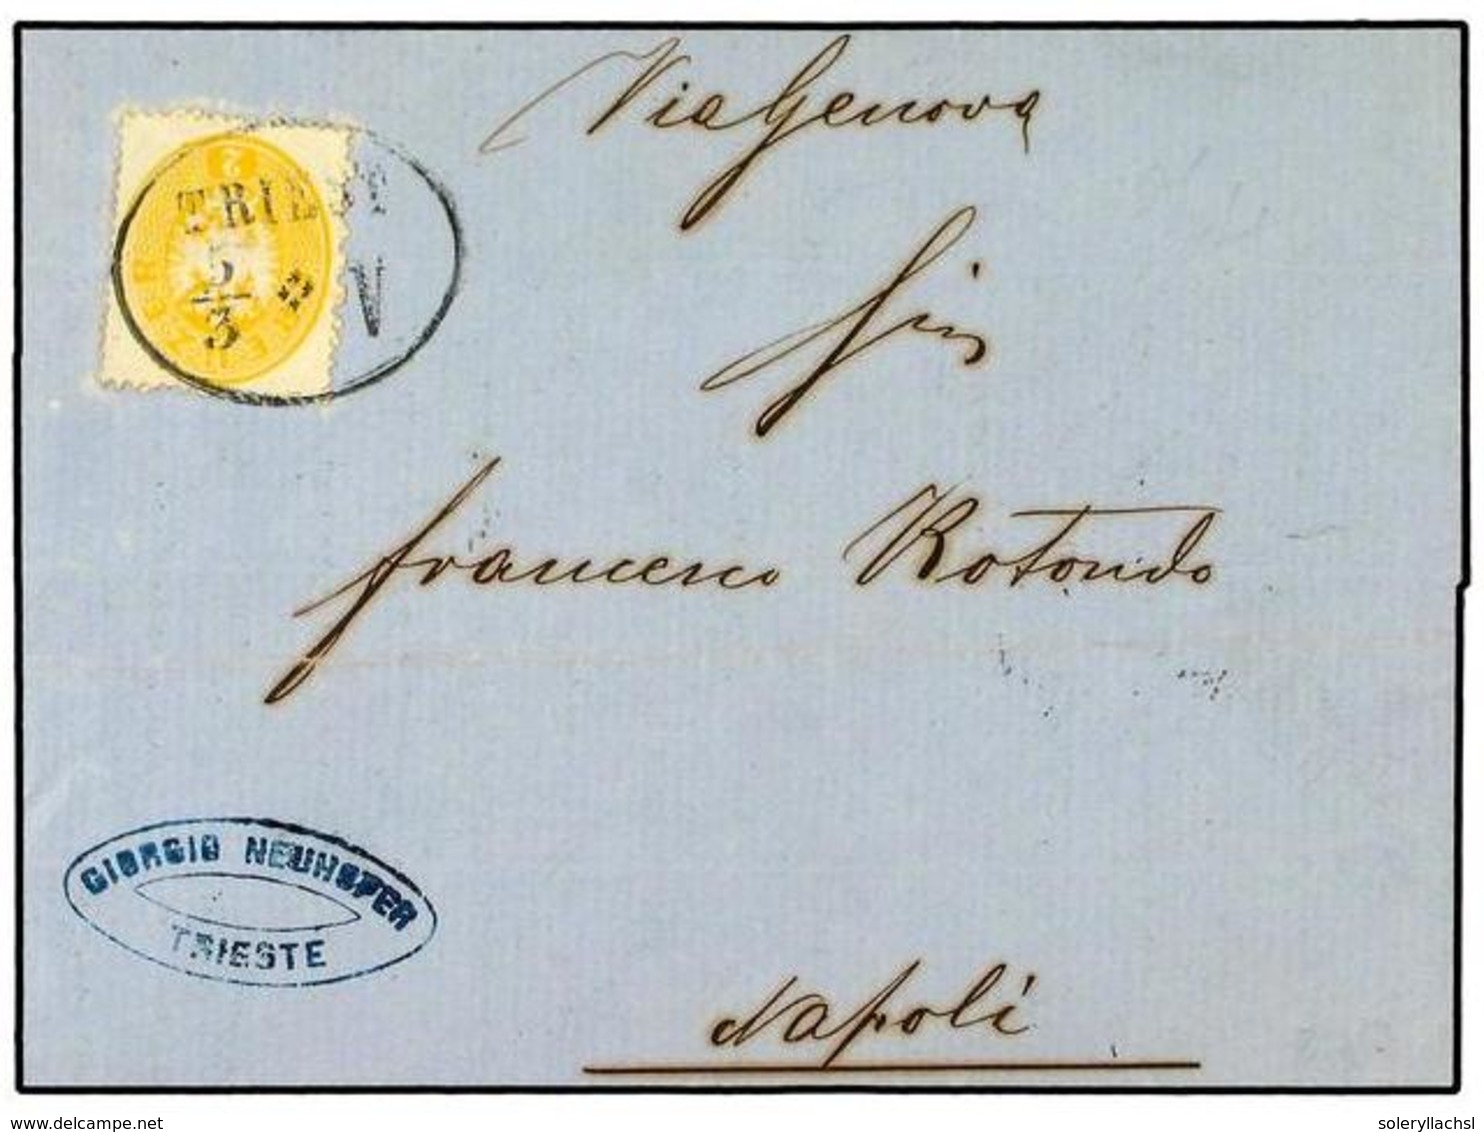 Via Genova
TRIEST
5
3
V
2
Sig
Francesco Rotondo
GIORGIO NEUHOFER
TRIESTE
Napoli
www.delcampe.net
soleryllachsl